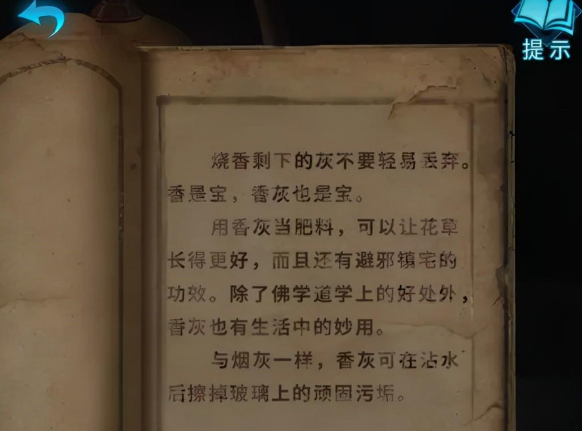 提示
烧香剩下的灰不要轻易丢弃。
香是宝，香灰也是宝。
用香灰当肥料，可以让花草
长得更好，而且还有避邪镇宅的
功效。除了佛学道学上的好处外，
香灰也有生活中的妙用。
与烟灰一样，香灰可在沾水
后擦掉玻璃上的顽固污垢。